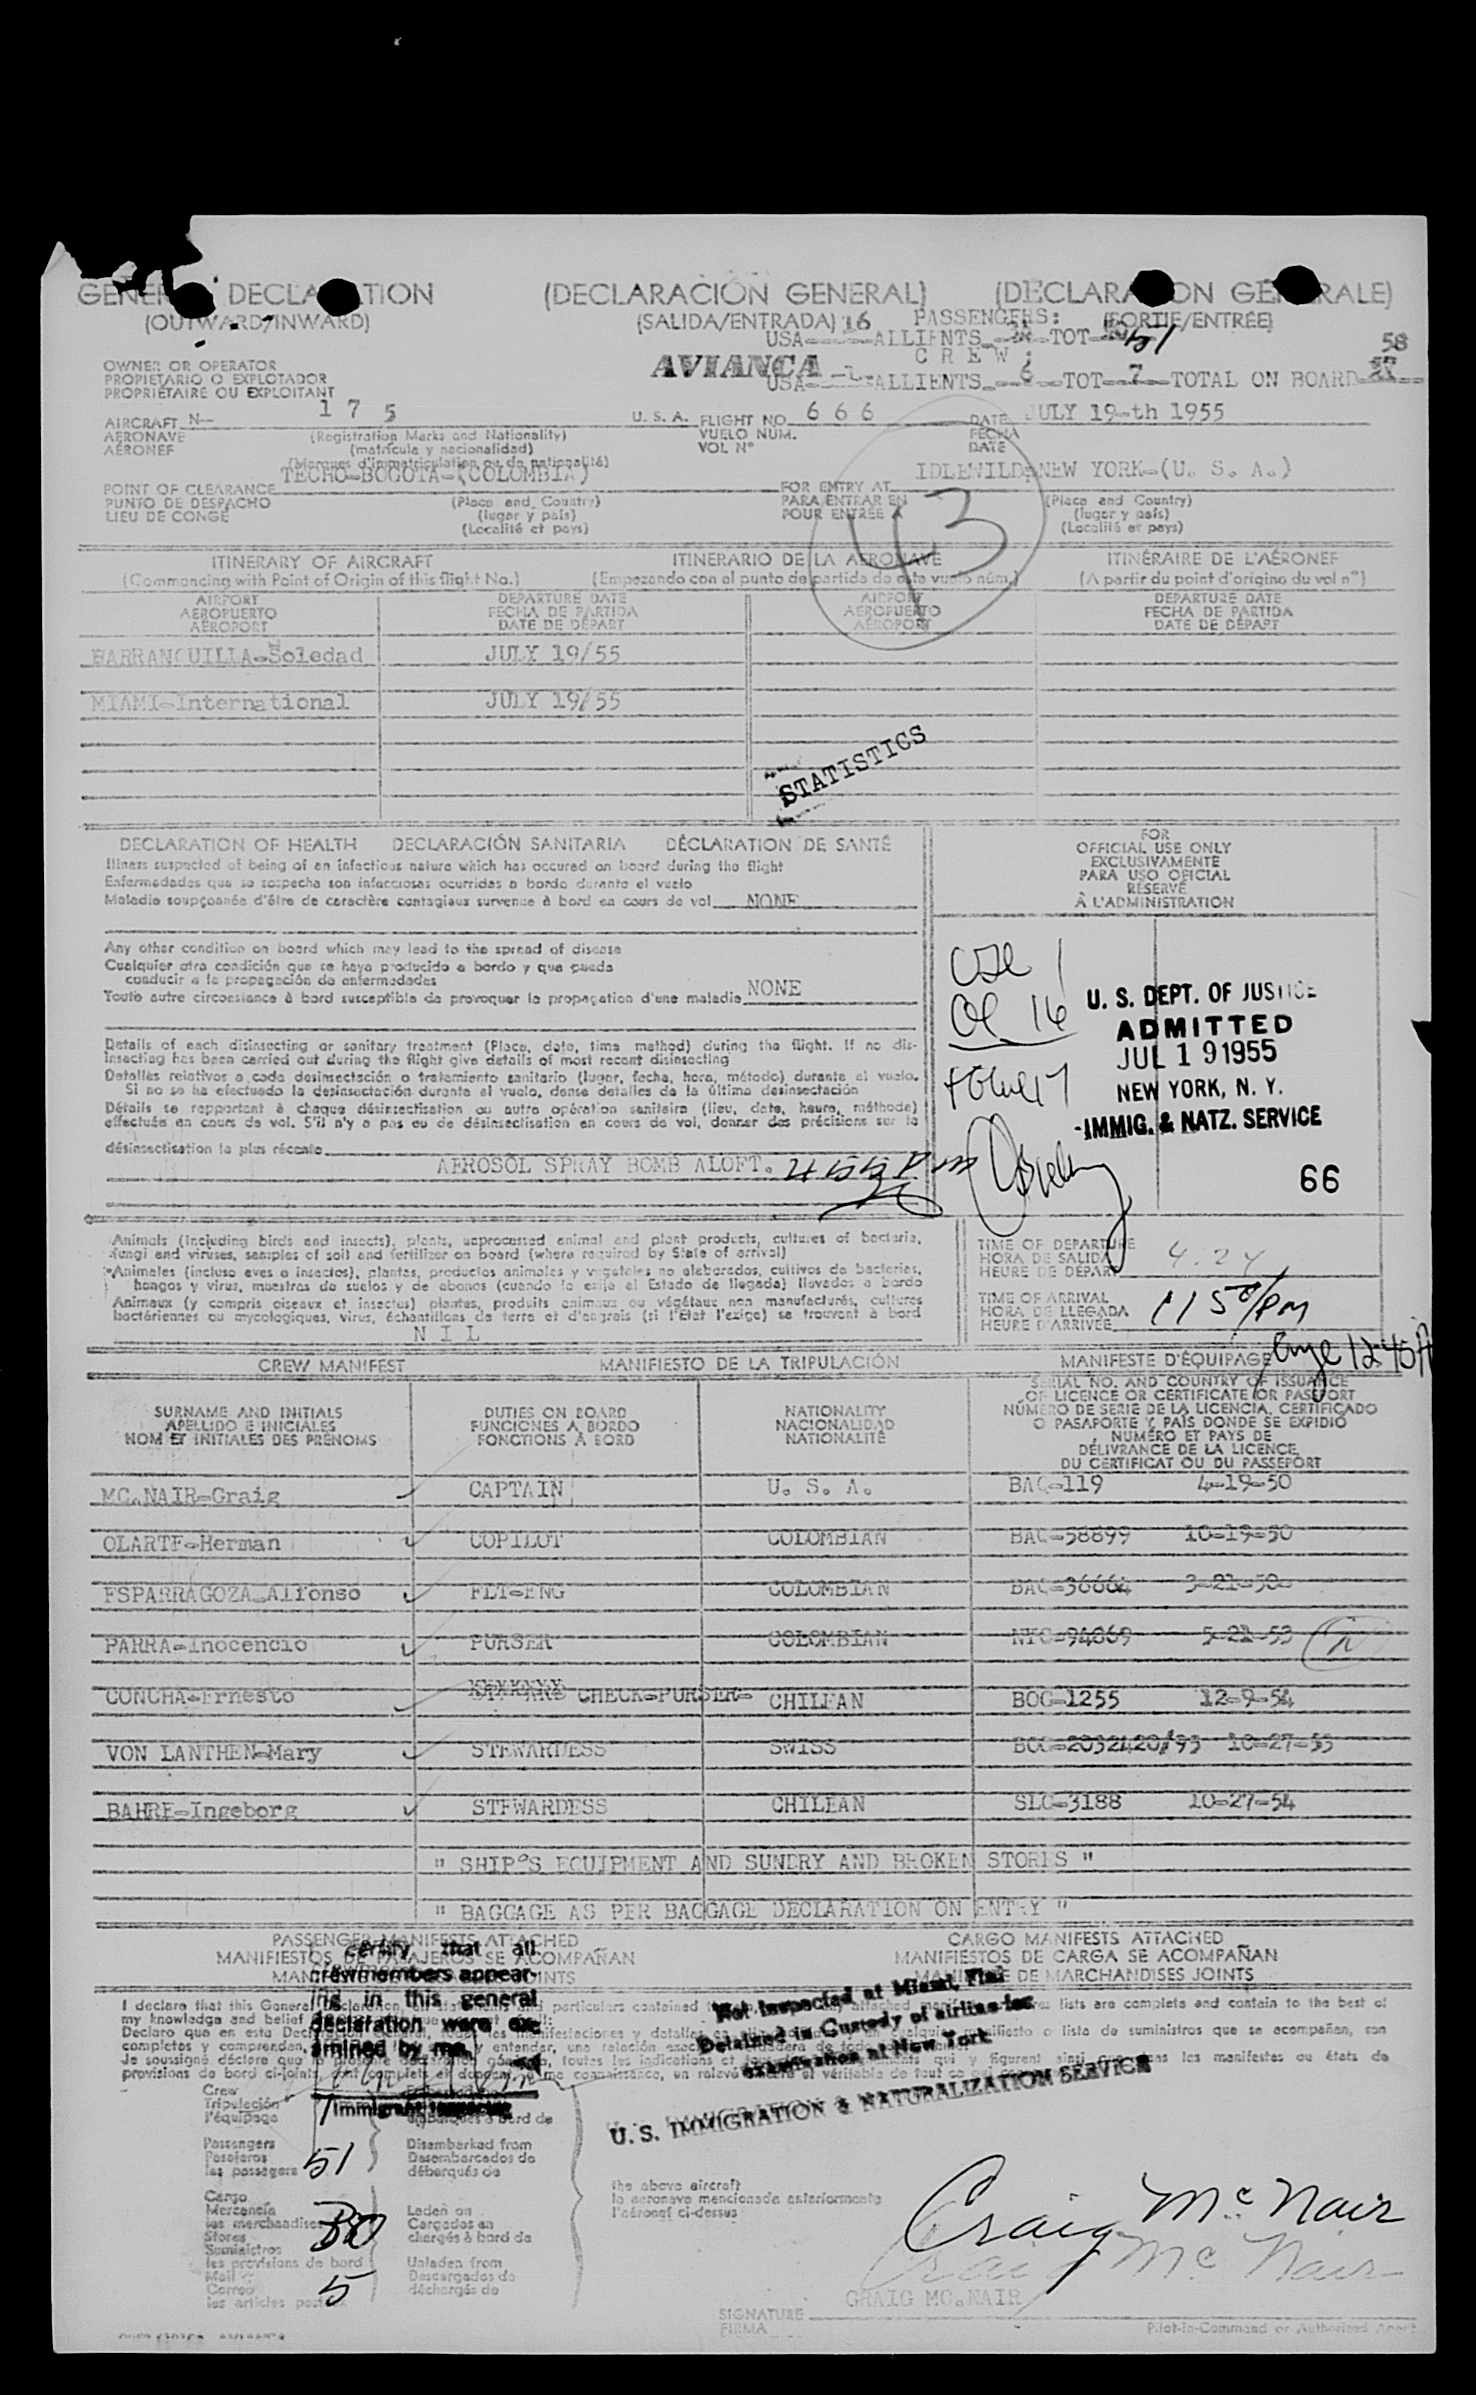 GENERAL DECLARATION (DECLARACIÓN GENERAL) (DÉCLARATION GÉNÉRALE)
(OUTWARD/INWARD) (SALIDA/ENTRADA) 16 PASSENGERS: (SORTIE/ENTRÉE)
USA ALLIENTS TOT 51
58
C R E W :
AVIANCA
USA 1 ALLIENTS 6 TOT 7 TOTAL ON BOARD
OWNER OR OPERATOR
PROPIETARIO O EXPLOTADOR
PROPRIÉTAIRE OU EXPLOITANT
AIRCRAFT N- 1 7 5 U. S. A. FLIGHT NO. 6 6 6 DATE JULY 19-th 1955
AERONAVE (Registration Marks and Nationality) VUELO NÚM. FECHA
AÉRONEF (matrícula y nacionalidad) VOL N° DATE
(Marques d'immatriculation ou de nationalité)
POINT OF CLEARANCE TECHO-BOGOTA-(COLOMBIA) FOR ENTRY AT IDLEWILD-NEW YORK-(U. S. A.)
PUNTO DE DESPACHO (Place and Country) PARA ENTRAR EN (Place and Country)
LIEU DE CONGÉ (lugar y país) POUR ENTRÉE À (lugar y país)
(Localité et pays) (Localité et pays)
43
ITINERARY OF AIRCRAFT ITINERARIO DE LA AERONAVE ITINÉRAIRE DE L'AÉRONEF
(Commencing with Point of Origin of this flight No.) (Empezando con el punto de partida de este vuelo núm.) (A partir du point d'origine du vol n°)
AIRPORT DEPARTURE DATE AIRPORT DEPARTURE DATE
AEROPUERTO FECHA DE PARTIDA AEROPUERTO FECHA DE PARTIDA
AÉROPORT DATE DE DÉPART AÉROPORT DATE DE DÉPART
BARRANQUILLA-Soledad JULY 19/55
MIAMI-International JULY 19/55
STATISTICS
DECLARATION OF HEALTH DECLARACIÓN SANITARIA DÉCLARATION DE SANTÉ
Illness suspected of being of an infectious nature which has occured on board during the flight
Enfermedades que se sospecha son infecciosas ocurridas a bordo durante el vuelo
Maladie soupçonnée d'être de caractère contagieux survenue à bord en cours de vol NONE
Any other condition on board which may lead to the spread of disease
Cualquier otra condición que se haya producido a bordo y que pueda
conducir a la propagación de enfermedades
Toute autre circonstance à bord susceptible de provoquer la propagation d'une maladie NONE
Details of each disinsecting or sanitary treatment (Place, date, time method) during the flight. If no dis-
insecting has been carried out during the flight give details of most recent disinsecting
Detalles relativos a cada desinsectación o tratamiento sanitario (lugar, fecha, hora, método) durante el vuelo.
Si no se ha efectuado la desinsectación durante el vuelo, dense detalles de la última desinsectación
Détails se rapportant à chaque désinsectisation ou autre opération sanitaire (lieu, date, heure, méthode)
effectuée en cours de vol. S'il n'y a pas eu de désinsectisation en cours de vol, donner des précisions sur la
désinsectisation la plus récente
AEROSOL SPRAY BOMB ALOFT.
FOR
OFFICIAL USE ONLY
EXCLUSIVAMENTE
PARA USO OFICIAL
RÉSERVÉ
À L'ADMINISTRATION
U. S. DEPT. OF JUSTICE
ADMITTED
JUL 19 1955
NEW YORK, N. Y.
IMMIG. & NATZ. SERVICE
66
Animals (including birds and insects), plants, unprocessed animal and plant products, cultures of bacteria,
fungi and viruses, samples of soil and fertilizer on board (where required by State of arrival)
Animales (incluso aves e insectos), plantas, productos animales y vegetales no elaborados, cultivos de bacterias,
hongos y virus, muestras de suelos y de abonos (cuando lo exija el Estado de llegada) llevados a bordo
Animaux (y compris oiseaux et insectes) plantes, produits animaux ou végétaux non manufacturés, cultures
bactériennes ou mycologiques, virus, échantillons de terre et d'engrais (si l'État l'exige) se trouvant à bord
N I L
TIME OF DEPARTURE
HORA DE SALIDA
HEURE DE DÉPART
TIME OF ARRIVAL
HORA DE LLEGADA
HEURE D'ARRIVÉE
CREW MANIFEST MANIFIESTO DE LA TRIPULACIÓN MANIFESTE D'ÉQUIPAGE
SURNAME AND INITIALS
APELLIDO E INICIALES
NOM ET INITIALES DES PRÉNOMS
DUTIES ON BOARD
FUNCIONES A BORDO
FONCTIONS À BORD
NATIONALITY
NACIONALIDAD
NATIONALITÉ
SERIAL NO. AND COUNTRY OF ISSUANCE
OF LICENCE OR CERTIFICATE OR PASSPORT
NÚMERO DE SERIE DE LA LICENCIA, CERTIFICADO
O PASAPORTE Y PAÍS DONDE SE EXPIDIÓ
NUMÉRO ET PAYS DE
DÉLIVRANCE DE LA LICENCE
DU CERTIFICAT OU DU PASSEPORT
MC.NAIR-Graig CAPTAIN U. S. A. BAQ-119 4-19-50
OLARTE-Herman COPILOT COLOMBIAN BAQ-58899 10-19-50
ESPARRAGOZA-Alfonso FLT-ENG COLOMBIAN BAQ-36664 3-21-50
PARRA-Inocencio PURSER COLOMBIAN 5-21-53
CONCHA-Ernesto CHECK-PURSER- CHILEAN BOG-1255 12-9-54
VON LANTHEN-Mary STEWARDESS SWISS BOG-2032420/93 10-27-53
BAHRE-Ingeborg STEWARDESS CHILEAN SLC-3188 10-27-54
" SHIP'S EQUIPMENT AND SUNDRY AND BROKEN STORES "
" BAGGAGE AS PER BAGGAGE DECLARATION ON ENTRY "
PASSENGER MANIFESTS ATTACHED CARGO MANIFESTS ATTACHED
MANIFIESTOS DE PASAJEROS SE ACOMPAÑAN MANIFIESTOS DE CARGA SE ACOMPAÑAN
MANIFESTE DE MARCHANDISES JOINTS
certify that all
crewmembers appear-
ing in this general
declaration were ex-
amined by me.
Immigrant Inspector
Not Inspected at Miami, Fla.
Detained in Custody of airline for
examination at New York
U. S. IMMIGRATION & NATURALIZATION SERVICE
Crew
Tripulación
l'équipage
Passengers
Pasajeros
les passagers 51
Disembarked from
Desembarcados de
débarqués de
Cargo
Mercancía
les marchandises
Stores
Suministros
les provisions de bord
Mail
Correo
5
Laden on
Cargados en
chargés à bord de
Unladen from
Descargados de
déchargés de
the above aircraft
la aeronave mencionada anteriormente
l'aéronef ci-dessus
Craig McNair
Craig McNair
GRAIG MC.NAIR
SIGNATURE
FIRMA
Pilot-in-Command or Authorized Agent